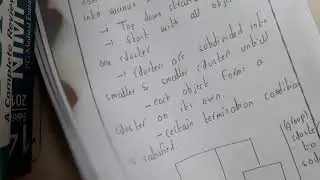 into various
→ Top down
→ Start with all
one cluster
→ Clusters are subdivided into
smaller & smaller cluster until
- each object forms a
cluster on its own.
- certain termination condition
is satisfied.
(group)
cluster
to
A Complete Review